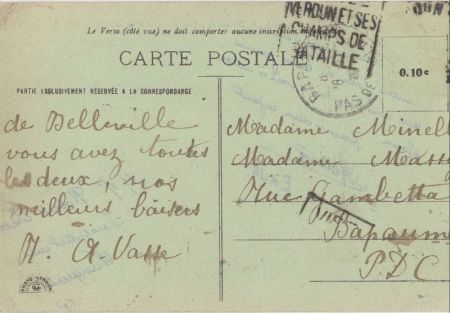 Le Verso (côté vue) ne doit comporter aucune inscription
VERDUN ET SES
CHAMPS DE
BATAILLE
CARTE POSTALE
0.10c
PARTIE EXCLUSIVEMENT RÉSERVÉE A LA CORRESPONDANCE
de Belleville
vous avez toutes
les deux, nos
meilleurs baisers
M. A Vasse
Madame Minell
Madame Massy
Rue Gambetta
Bapaume
P.D.C